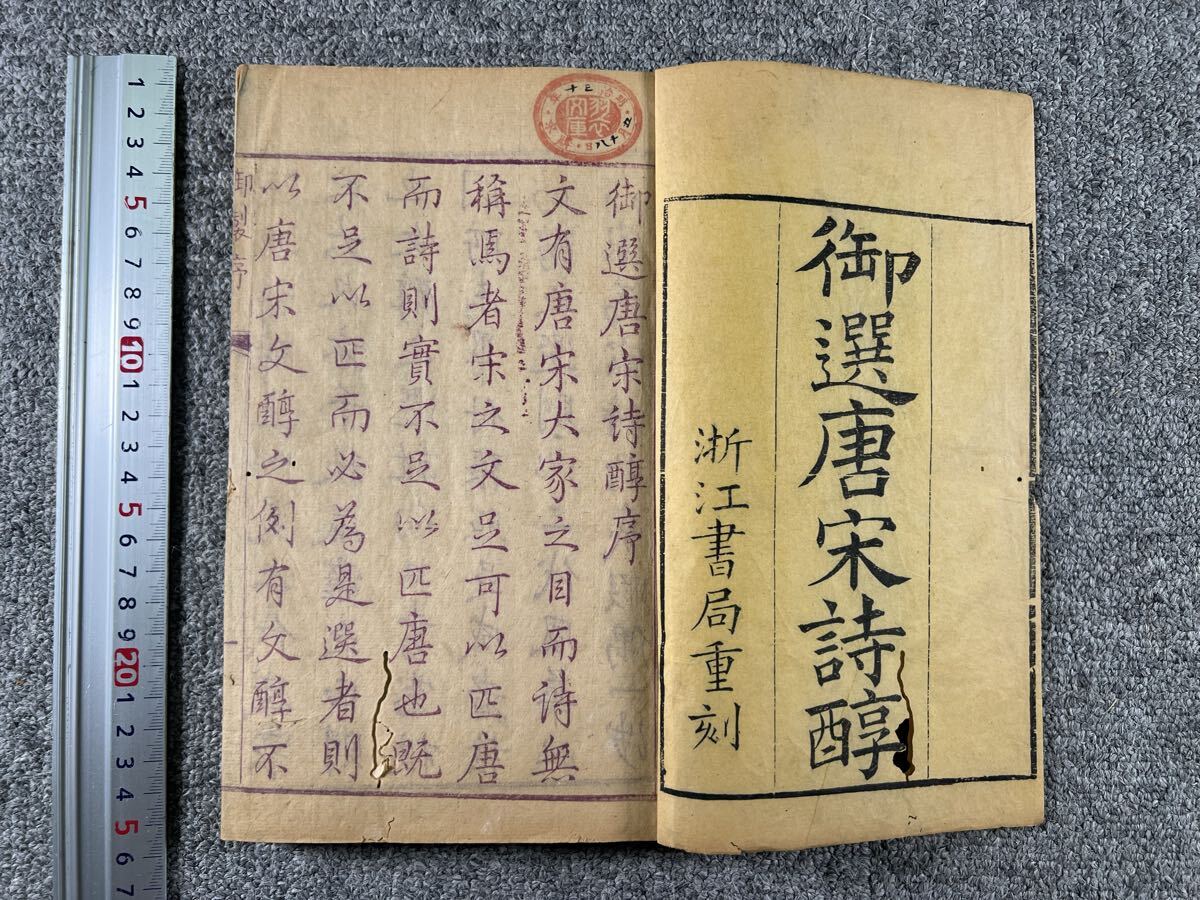 御選唐宋詩醇
浙江書局重刻
御選唐宋詩醇序
文有唐宋大家之目而詩無
稱焉者宋之文足可以匹唐
而詩則實不足以匹唐也既
不足以匹而必為是選者則
以唐宋文醇之例有文醇不
御製序
一
明治三十年
五月十八日
文庫
1 2 3 4 5 6 7 8 9 10 1 2 3 4 5 6 7 8 9 20 1 2 3 4 5 6 7